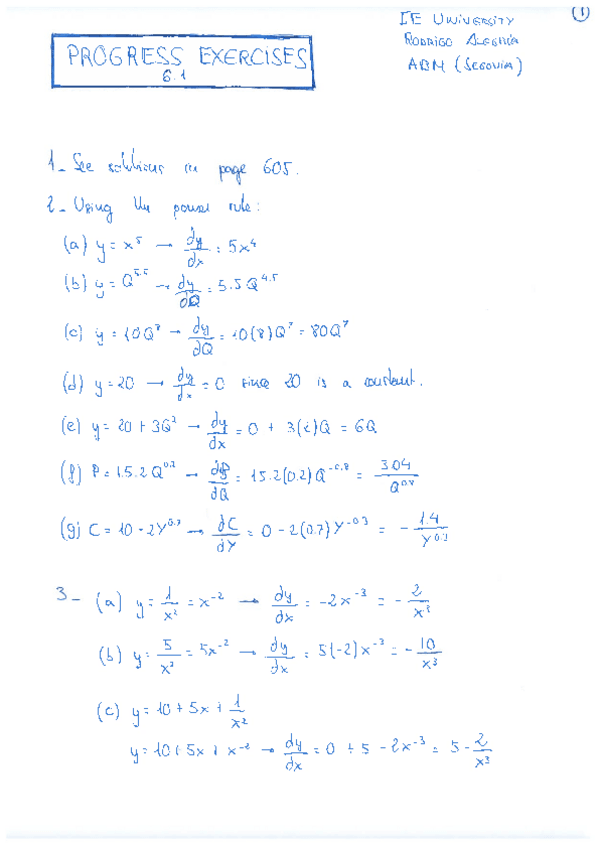 1
IE UNIVERSITY
RODRIGO ALEGRÍA
ABM (SEGOVIA)
PROGRESS EXERCISES
6.1
1 - See solutions in page 605.
2 - Using the power rule:
(a) y = x⁵ → dy/dx = 5x⁴
(b) y = Q^5.5 → dy/dQ = 5.5 Q^4.5
(c) y = 10Q⁸ → dy/dQ = 10(8)Q⁷ = 80Q⁷
(d) y = 20 → dy/dx = 0 since 20 is a constant.
(e) y = 20 + 3Q² → dy/dx = 0 + 3(2)Q = 6Q
(f) P = 15.2 Q^0.2 → dP/dQ = 15.2(0.2) Q^-0.8 = 3.04/Q^0.8
(g) C = 10 - 2Y^0.7 → dC/dY = 0 - 2(0.7) Y^-0.3 = - 1.4/Y^0.3
3 - (a) y = 1/x² = x⁻² → dy/dx = -2x⁻³ = - 2/x³
(b) y = 5/x² = 5x⁻² → dy/dx = 5(-2)x⁻³ = - 10/x³
(c) y = 10 + 5x + 1/x²
y = 10 + 5x + x⁻² → dy/dx = 0 + 5 - 2x⁻³ = 5 - 2/x³